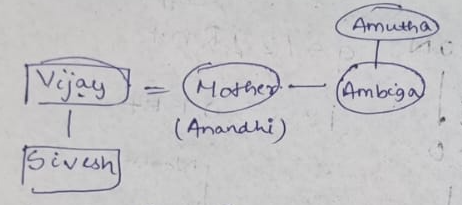 Amutha
Vijay = Mother — Ambiga
(Anandhi)
Sivesh